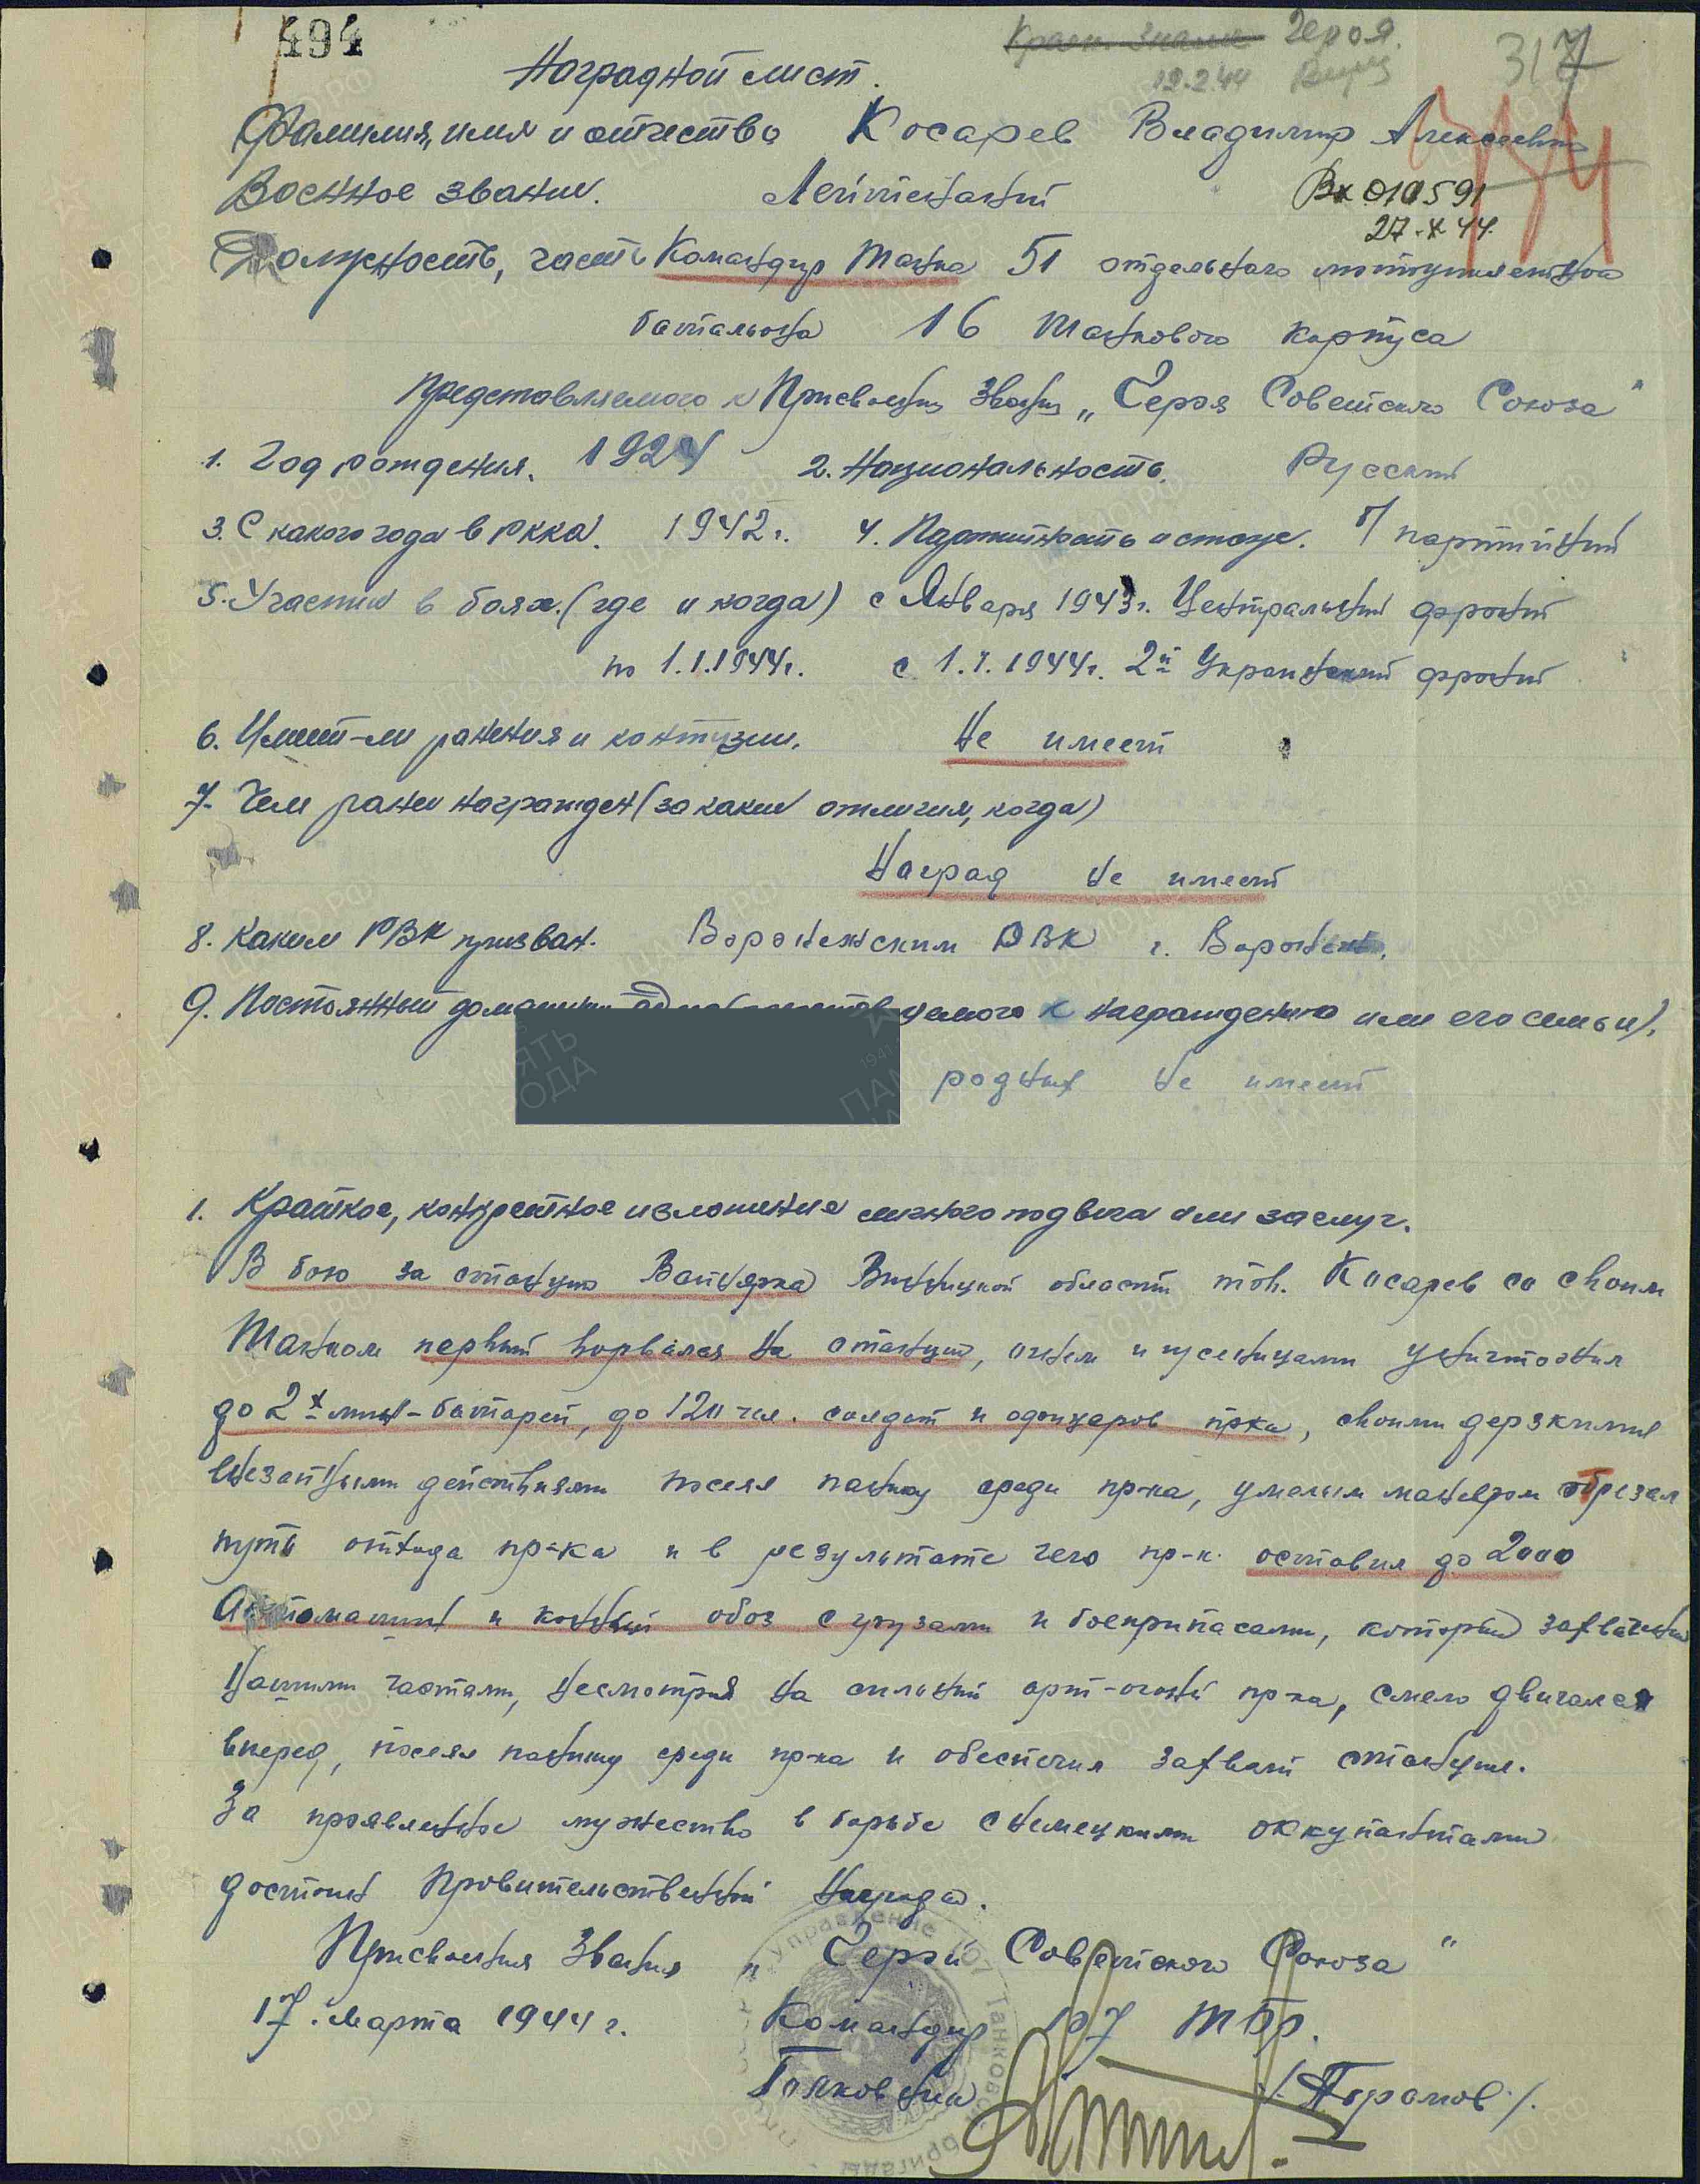 494
Красн. Знамя Героя.
317
19.2.44
Наградной лист.
Фамилия, имя и отчество Косарев Владимир Алексеевич
Военное звание. Лейтенант
Вх 010591
27.X.44.
Должность, часть Командир танка 51 отдельного мотоциклетного
батальона 16 танкового корпуса
Представляемого к Присвоению Звания „Героя Советского Союза"
1. Год рождения. 1924 2. Национальность. Русский
3. С какого года в РККА. 1942 г. 4. Партийность и стаж. б/партийный
5. Участие в боях. (где и когда) с Января 1943 г. Центральный фронт
по 1.1.1944 г. с 1.1.1944 г. 2й Украинский фронт
6. Имеет-ли ранения и контузии. Не имеет
7. Чем ранее награжден (за какие отличия, когда)
Наград не имеет
8. Каким РВК призван. Воронежским РВК г. Воронеж.
9. Постоянный к награждению или его семьи).
родных не имеет
1. Краткое, конкретное изложение личного подвига или заслуг.
В бою за станцию Вапнярка Винницкой области тов. Косарев со своим
танком первый ворвался на станцию, огнем и гусеницами уничтожил
до 2х мин-батарей, до 120 чел. солдат и офицеров пр-ка, своими дерзкими
внезапными действиями посеял панику среди пр-ка, умелым маневром отрезал
путь отхода пр-ка и в результате чего пр-к. оставил до 2000
Автомашин и конный обоз с грузами и боеприпасами, который захвачен
нашими частями, несмотря на сильный арт-огонь пр-ка, смело двигался
вперед, посеял панику среди пр-ка и обеспечил захват станции.
За проявленное мужество в борьбе с немецкими оккупантами
достоин Правительственной награды.
Присвоения Звания „Герой Советского Союза"
17. Марта 1944 г. Командир 107 тбр.
Полковник /Абрамов/.